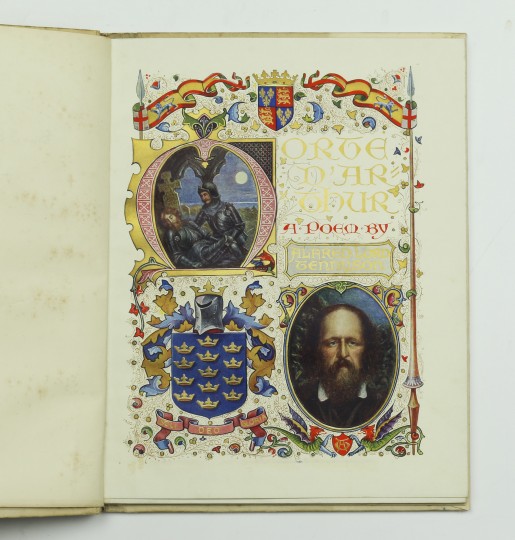 MORTE
D'AR
THUR
A·POEM·BY
ALFRED LORD
TENNYSON